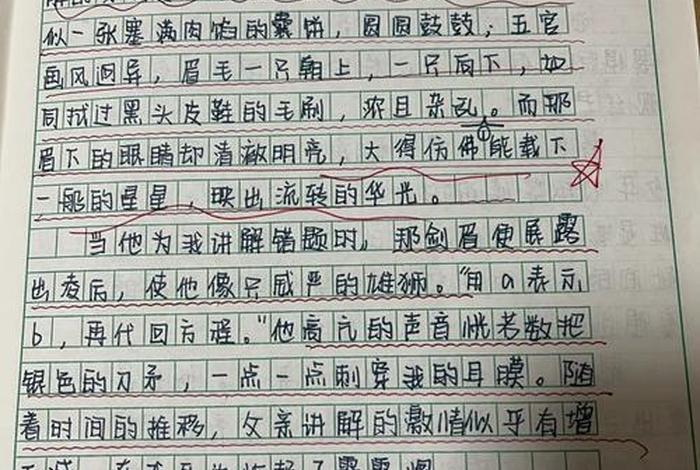 似一张塞满肉馅的囊饼，圆圆鼓鼓；五官
画风迥异，眉毛一只朝上，一只向下，如
同找过黑头皮鞋的毛刷，浓且杂乱。而那
眉下的眼睛却清澈明亮，大得仿佛能载下
一般的星星，映出流转的华光。
当他为我讲解错题时，那剑眉便展露
出凌厉，使他像只威严的雄狮。"用a表示
b，再代回方程。"他高亢的声音恍若数把
银色的刀矛，一点一点刺穿我的耳膜。随
着时间的推移，父亲讲解的激情似乎有增